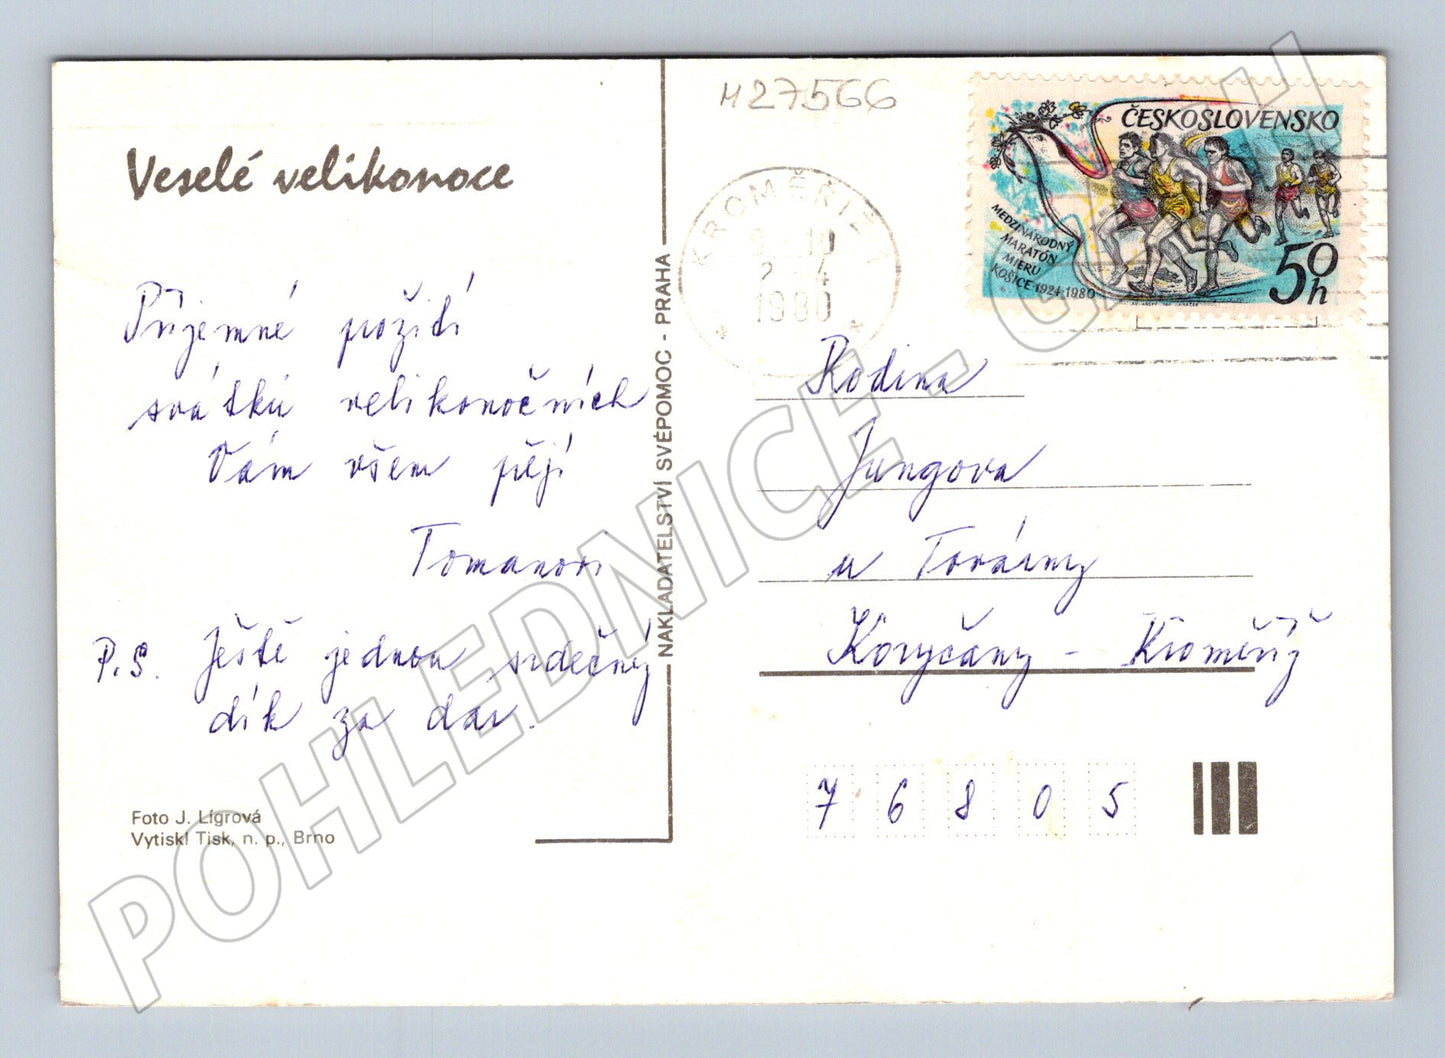 Veselé velikonoce
Příjemné požití
svátků velikonočních
Vám všem přejí
Tomanovi
P.S. Ještě jednou srdečný
dík za dar.
Foto J. Lígrová
Vytiskl Tisk, n. p., Brno
NAKLADATELSTVÍ SVÉPOMOC - PRAHA
M27566
KROMĚŘÍŽ 1
9-10
2.4
1980
ČESKOSLOVENSKO
MEDZINÁRODNÝ
MARATÓN
MIERU
KOŠICE 1924-1980
50h
Rodina
Jungova
u Továrny
Koryčany - Kroměříž
76805
POHLEDNICE - CZECH